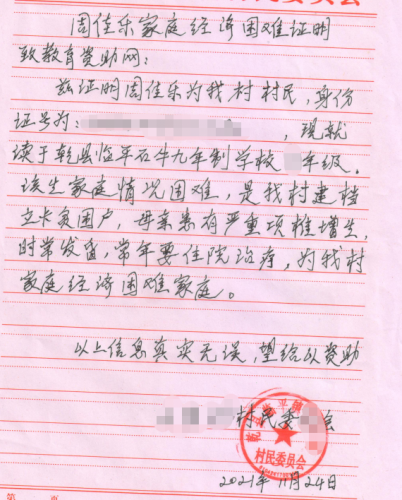 民委员会
周佳乐家庭经济困难证明
致教育资助网：
兹证明周佳乐为我村村民，身份
证号为：，现就
读于乾县临平石牛九年制学校年级。
该生家庭情况困难，是我村建档
立卡贫困户，母亲患有严重颈椎增生，
时常发昏，常年要住院治疗，为我村
家庭经济困难家庭。
以上信息真实无误，望给以资助
村民委会
村民委员会
2021年11月24日
第 页